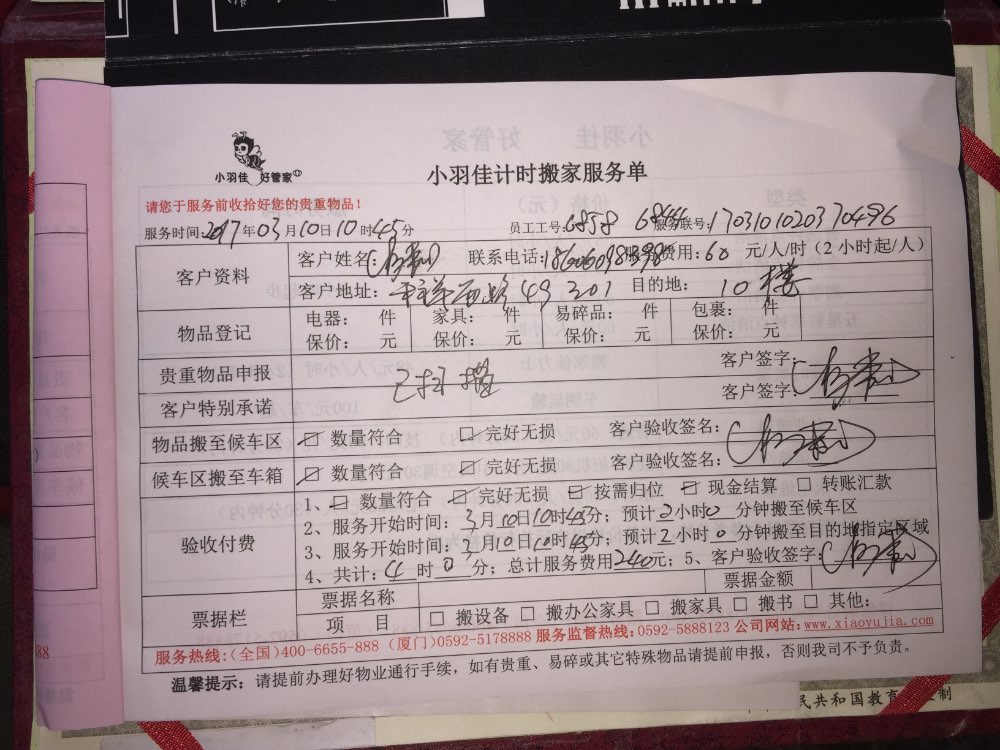 小羽佳 好管家
小羽佳计时搬家服务单
请您于服务前收拾好您的贵重物品！
服务时间：2017年03月10日10时45分 员工工号：6858 6844 服务联号：1703101020370496
客户资料
客户姓名： 联系电话： 服务费用：60 元/人/时（2小时起/人）
客户地址： 49 201 目的地： 10楼
物品登记
电器： 件 家具： 件 易碎品： 件 包裹： 件
保价： 元 保价： 元 保价： 元 保价： 元
贵重物品申报 已扫描 客户签字：
客户特别承诺 客户签字：
物品搬至候车区 □ 数量符合 □ 完好无损 客户验收签名：
候车区搬至车箱 □ 数量符合 □ 完好无损 客户验收签名：
验收付费
1、□ 数量符合 □ 完好无损 □ 按需归位 □ 现金结算 □ 转账汇款
2、服务开始时间：3月10日10时45分；预计2小时0 分钟搬至候车区
3、服务开始时间：3月10日10时45分；预计2小时0 分钟搬至目的地指定区域
4、共计：4 时 0 分；总计服务费用240元；5、客户验收签字：
票据栏
票据名称 票据金额
项 目 □ 搬设备 □ 搬办公家具 □ 搬家具 □ 搬书 □ 其他：
服务热线：(全国)400-6655-888 (厦门)0592-5178888 服务监督热线：0592-5888123 公司网站：www.xiaoyujia.com
温馨提示：请提前办理好物业通行手续，如有贵重、易碎或其它特殊物品请提前申报，否则我司不予负责。
民共和国教育 制